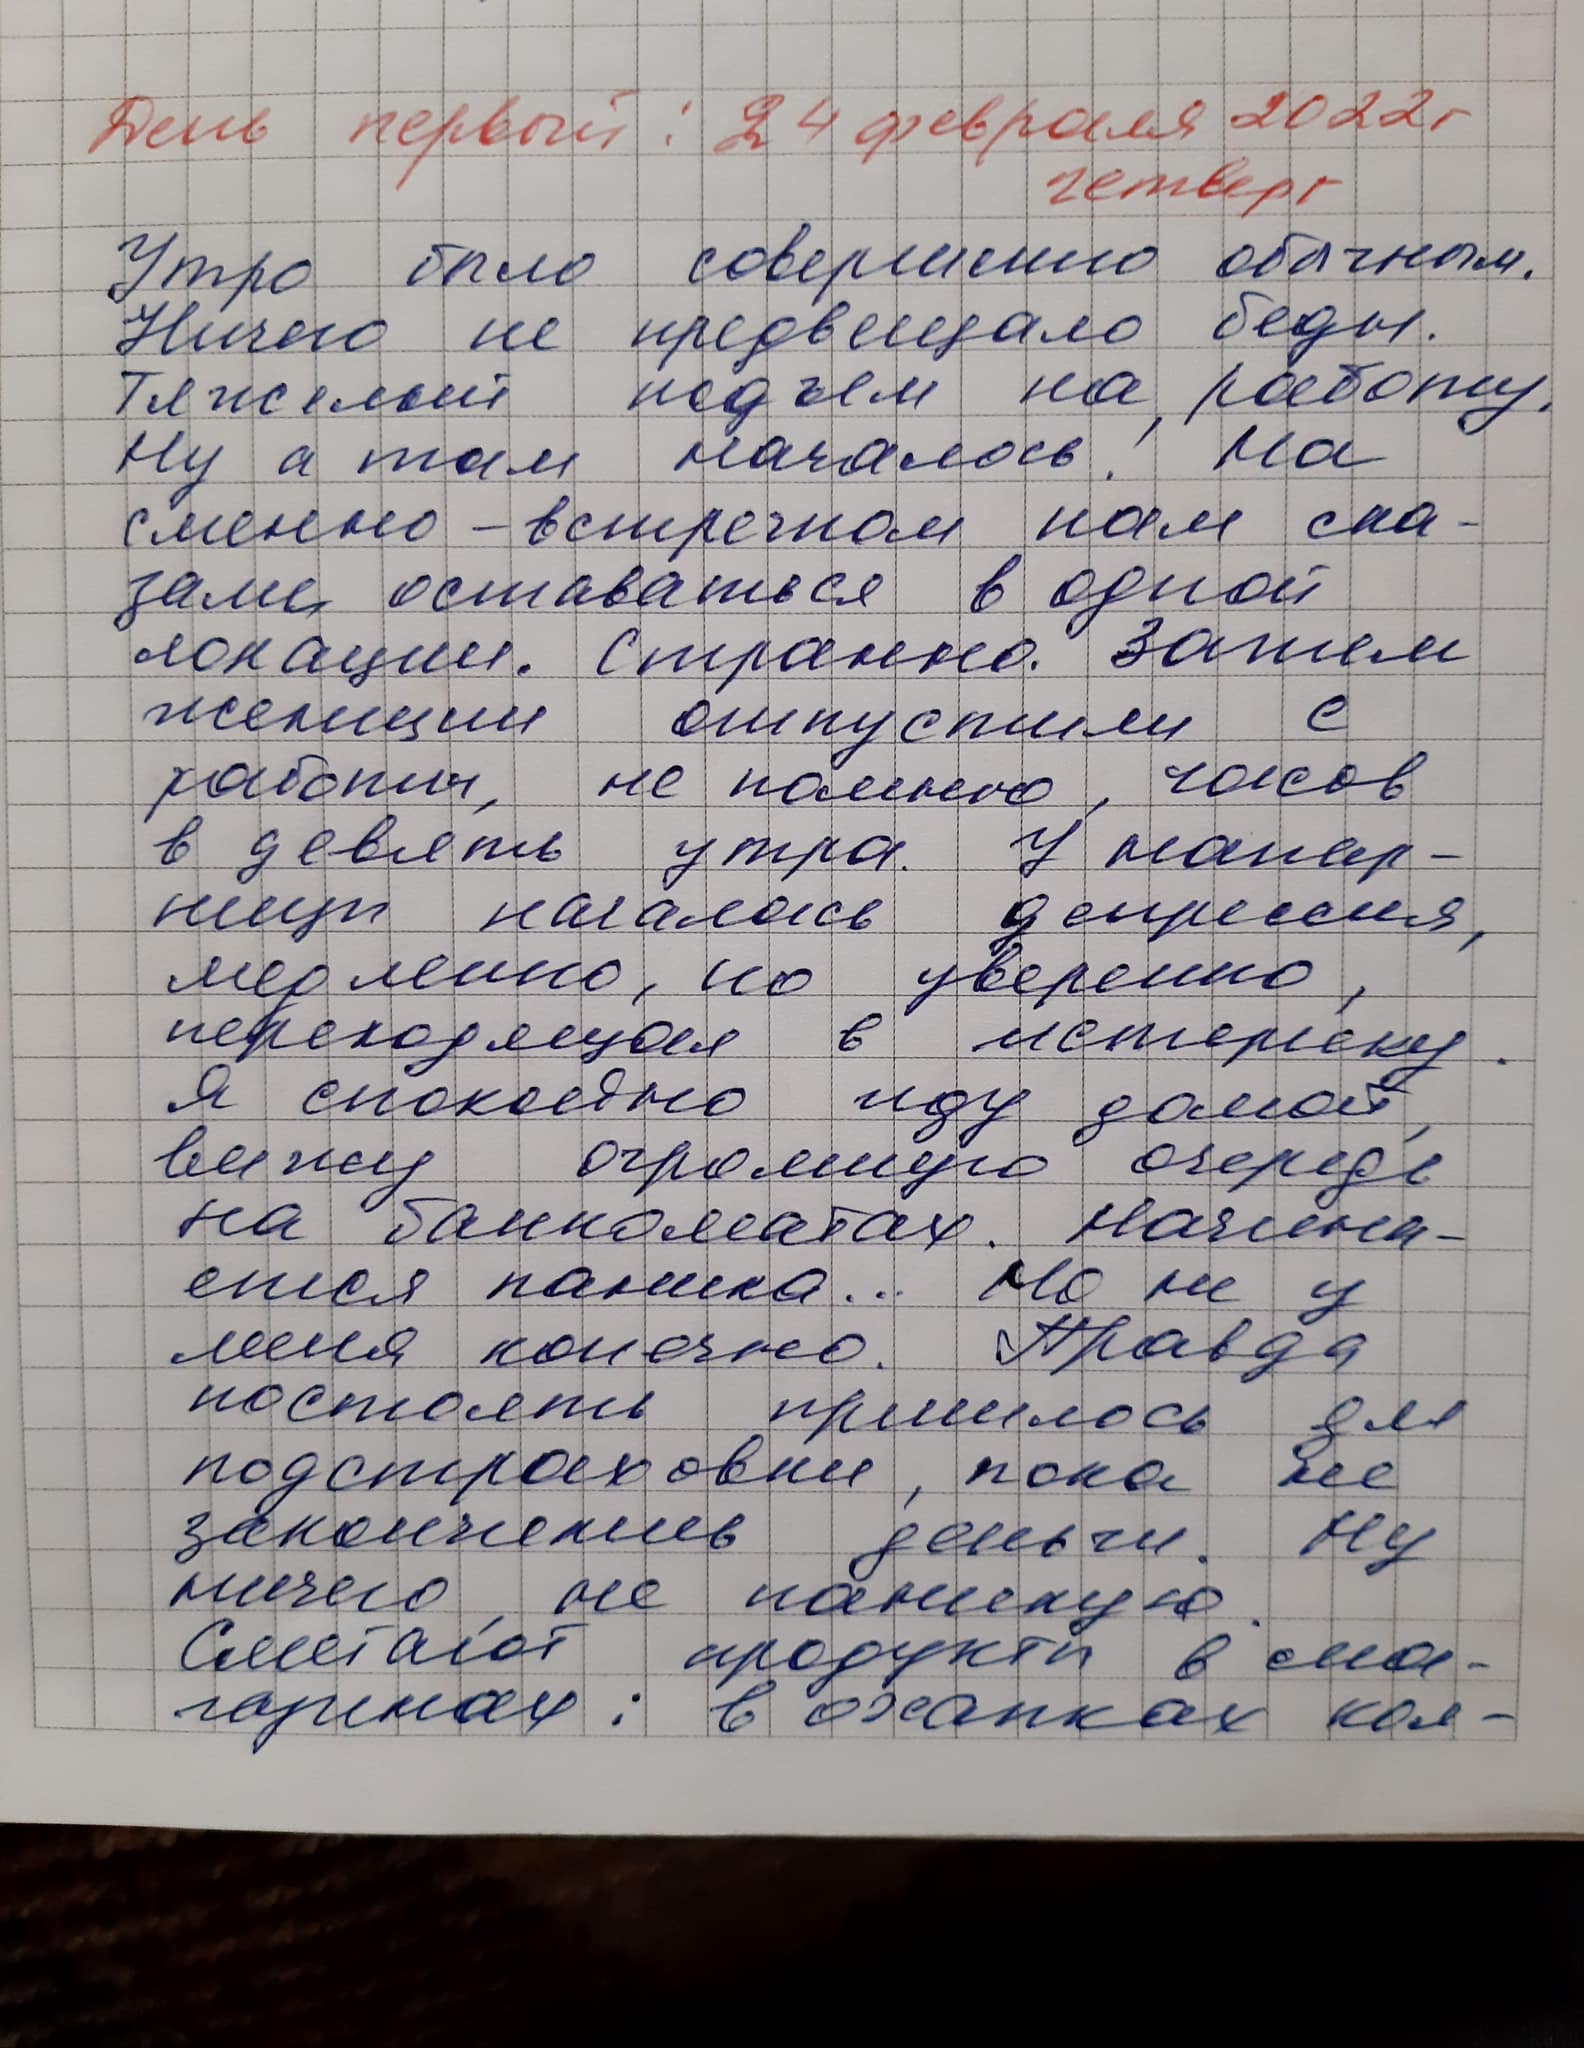 День первый: 24 февраля 2022г
четверг
Утро было совершенно обычным.
Ничего не предвещало беды.
Тяжелый подъем на работу.
Ну а там началось! На
сменно-встречном нам ска-
зали, оставаться в одной
локации. Странно. Затем
женщин отпустили с
работы, не помню, часов
в девять утра. У напар-
ницы началась депрессия,
медленно, но уверенно,
переходящая в истерику.
Я спокойно иду домой,
вижу огромную очередь
на банкоматах. Начина-
ется паника... Но не у
меня конечно. Правда
постоять пришлось для
подстраховки, пока не
закончились деньги. Ну
ничего, не паникую.
Сметают продукты в ма-
газинах: в охапках кол-